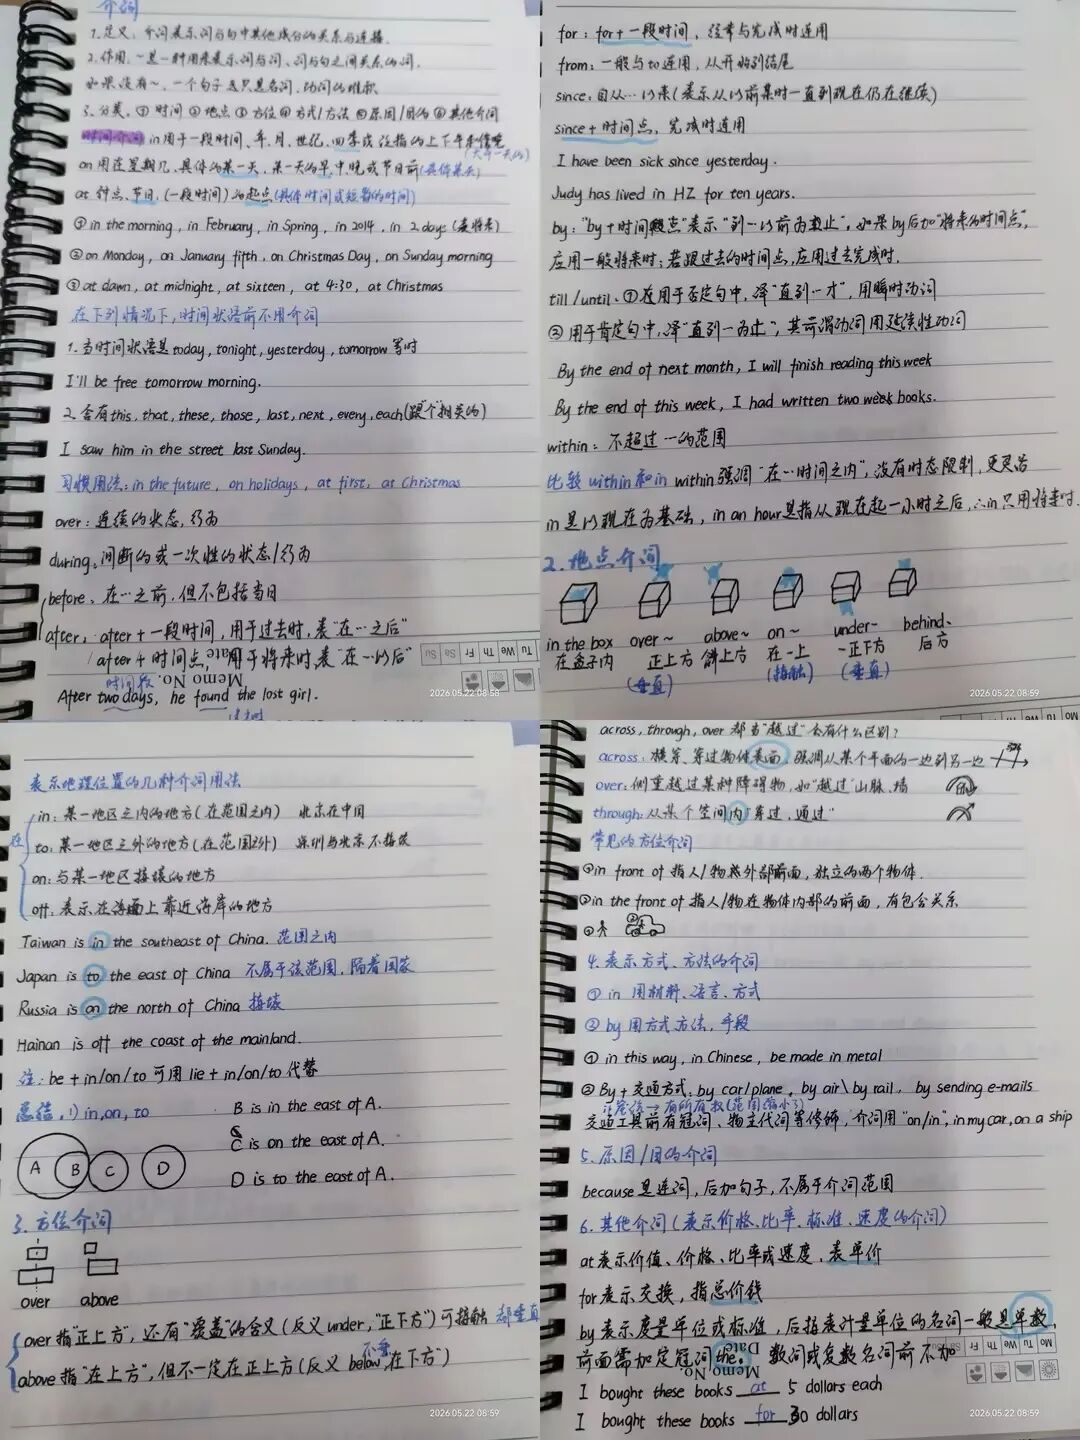 介词
1.定义：介词表示词与句中其他成分的关系与连接.
2.作用：~是一种用来表示词与词、词与句之间关系的词.
如果没有~，一个句子就只是名词、动词的堆积
3.分类：①时间 ②地点 ③方位 ④方式/方法 ⑤原因/目的 ⑥其他介词
时间介词 in 用于一段时间、年、月、世纪、四季或泛指的上下午和傍晚
on 用在星期几、具体的某一天、某一天的早、中、晚或节日前(具体某天)
at 钟点、节日、(一段时间)的起点(具体时间或短暂的时间)
①in the morning, in February, in Spring, in 2014, in 2 days (表将来)
②on Monday, on January fifth, on Christmas Day, on Sunday morning
③at dawn, at midnight, at sixteen, at 4:30, at Christmas
在下列情况下，时间状语前不用介词
1.当时间状语是today, tonight, yesterday, tomorrow 等时
I'll be free tomorrow morning.
2.含有this, that, these, those, last, next, every, each(跟"个"相关的)
I saw him in the street last Sunday.
习惯用法：in the future, on holidays, at first, at Christmas
over：连续的状态，行为
during：间断的或一次性的状态/行为
before：在…之前，但不包括当日
after：after+一段时间，用于过去时，表"在…之后"
after+时间点，用于将来时表"在…以后"
时间段
After two days, he found the lost girl.
过去时
Memo No.
Date
Mo Tu We Th Fr Sa Su
2026.05.22 08:58
for：for+一段时间，经常与完成时连用
from：一般与to连用，从开始到结尾
since：自从…以来(表示从以前某时一直到现在仍在继续)
since+时间点，完成时连用
I have been sick since yesterday.
Judy has lived in HZ for ten years.
by："by+时间点"表示"到…以前为止"，如果by后加"将来的时间点"，
应用一般将来时；若跟过去的时间点，应用过去完成时.
till/until：①在用于否定句中，译"直到…才"，用瞬时动词
②用于肯定句中，译"直到…为止"，其前谓动词用延续性动词
By the end of next month, I will finish reading this week
By the end of this week, I had written two books.
within：不超过…的范围
比较 within 和 in within强调"在…时间之内"，没有时态限制，更灵活
in是以现在为基础，in an hour是指从现在起一小时之后，∴in只用将来时.
2.地点介词
in the box over~ above~ on~ under~ behind~
在盒子内 正上方 斜上方 在…上 …正下方 后方
(垂直) (接触) (垂直)
2026.05.22 08:59
表示地理位置的几种介词用法
在
in：某一地区之内的地方(在范围之内) 北京在中国
to：某一地区之外的地方(在范围之外) 深圳与北京不接壤
on：与某一地区接壤的地方
off：表示在海面上靠近海岸的地方
Taiwan is in the southeast of China. 范围之内
Japan is to the east of China 不属于该范围，隔着国家
Russia is on the north of China 接壤
Hainan is off the coast of the mainland.
注：be+in/on/to 可用 lie+in/on/to 代替
总结：1) in, on, to
B is in the east of A.
C is on the east of A.
D is to the east of A.
A B C D
3.方位介词
over above
over 指"正上方"，还有"覆盖"的含义(反义 under，"正下方")可接触 都垂直
above 指"在上方"，但不一定在正上方(反义 below，"在下方")
2026.05.22 08:59
across, through, over 都当"越过"会有什么区别？
across：横穿、穿过物体表面，强调从某个平面的一边到另一边
over：侧重越过某种障碍物，如"越过"山脉、墙
through：从某个空间内"穿过，通过"
常见的方位介词
①in front of 指人/物或外部前面，独立的两个物体.
②in the front of 指人/物在物体内部的前面，有包含关系
① ②
4.表示方式、方法的介词
①in 用材料、语言、方式
②by 用方式方法，手段
①in this way, in Chinese, be made in metal
②By+交通方式：by car/plane, by air\by rail, by sending e-mails
交通工具前有冠词、物主代词等修饰，介词用"on/in", in my car, on a ship
5.原因/目的介词
because是连词，后加句子，不属于介词范围
6.其他介词(表示价格、比率、标准、速度的介词)
at表示价值、价格、比率或速度，表单价
for表示交换，指总价钱
by表示度量单位或标准，后接表计量单位的名词一般是单数，
前面需加定冠词the。数词或复数名词前不加
I bought these books at 5 dollars each
I bought these books for 30 dollars
Memo No.
Date
Mo Tu We Th Fr
2026.05.22 08:59